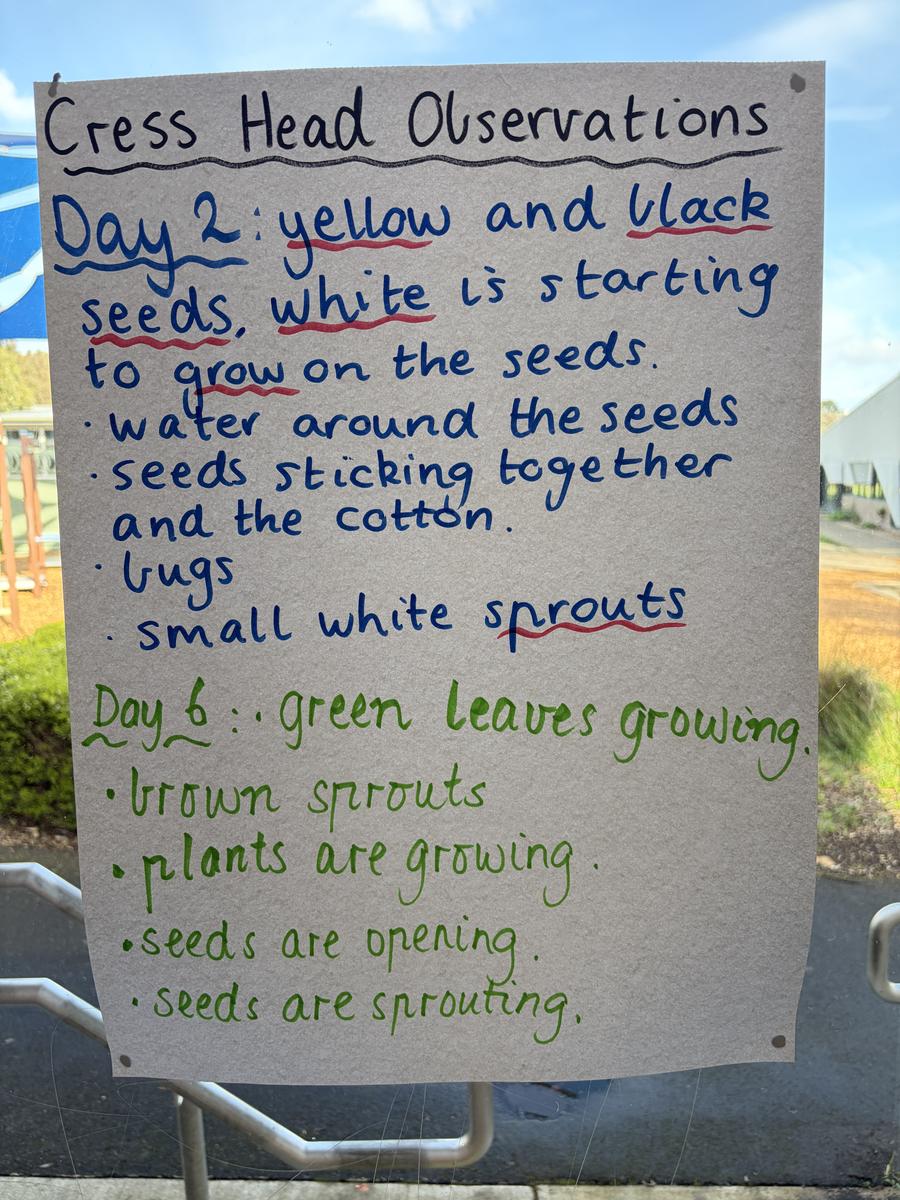 Cress Head Observations
Day 2: yellow and black
seeds, white is starting
to grow on the seeds.
· water around the seeds
· seeds sticking together
and the cotton.
· bugs
· small white sprouts
Day 6: · green leaves growing.
· brown sprouts
· plants are growing.
· seeds are opening.
· seeds are sprouting.